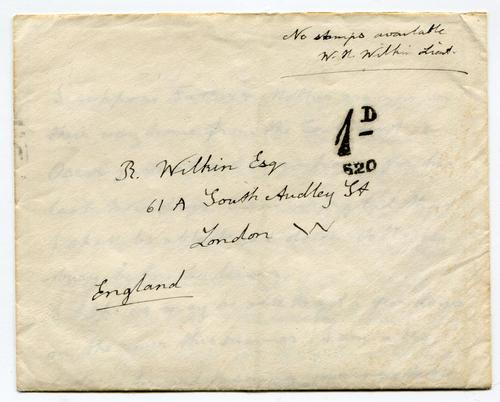 No stamps available
W. N. Wilkin Lieut.
1 D
620
R. Wilkin Esq
61 A South Audley St
London W
England